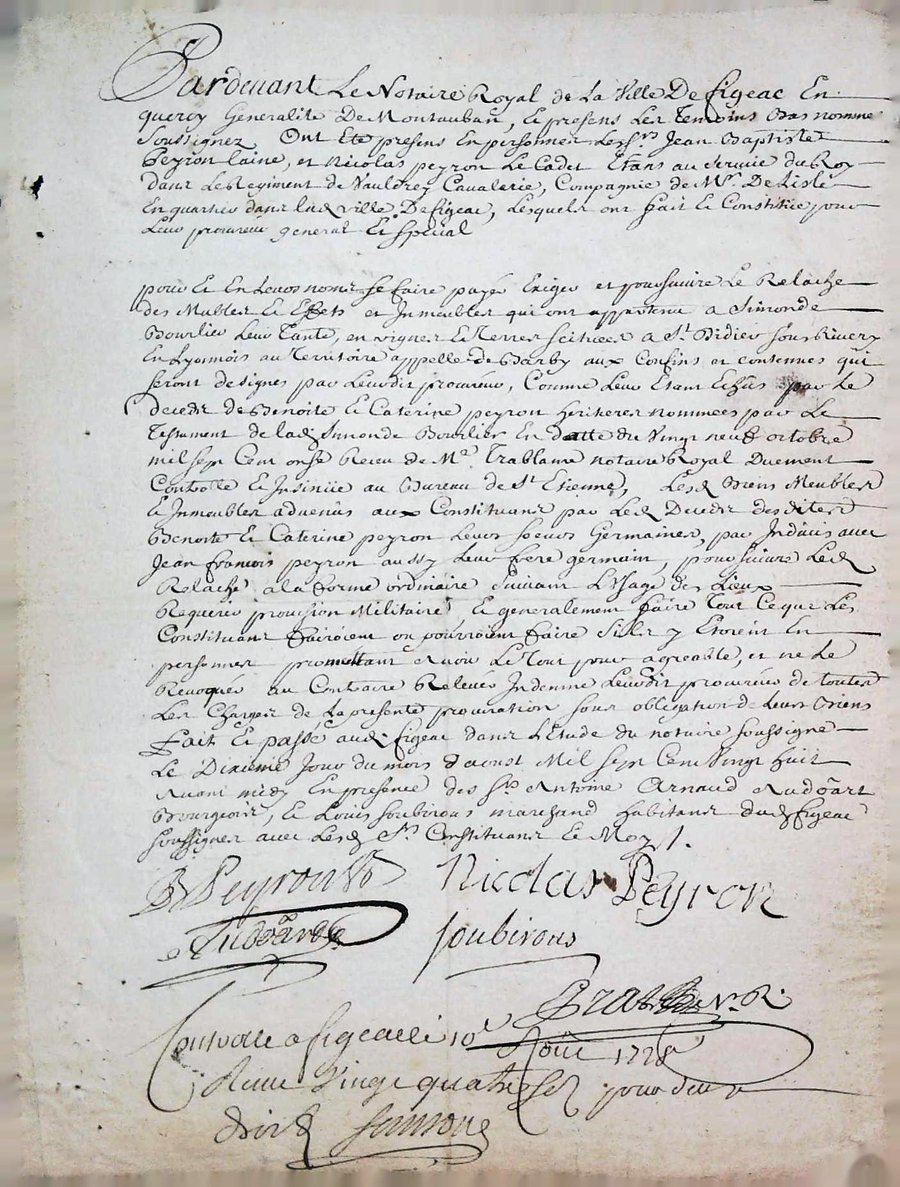 Pardevant Le Notaire Royal de La Ville De figeac En
quercy Generalité De Montauban, Et presens Les Temoins Bas nommé
Soussignez Ont Eté presens En personnes Les Srs Jean Baptiste
Peyron laine, et Nicolas peyron Le Cadet Etans au Service du Roy
dans Le Regiment de Vaudrey Cavalerie, Compagnie de Mr. De Lisle
En quartier dans lad ville De figeac, Lesquels ont fait Et Constitué pour
Leur procureur general Et special
pour Et En Leurs noms se faire payer Exiger et poursuivre Le Relache
des Mubles Et Effets et Inmeubles qui ont appartenu a Simonde
Bourlier Leur Tante, en vignes Et Terres scitueés a St. Didier sous
En Lyonnois au Territoire appellé de Barby aux Confins et contenues qui
seront designés par Leurdit procureur, Comme Leur Etant Echus par Le
decedz de Benoite Et Caterine peyron heritieres nommées par Le
Testament de lad Simonde Bourlier En datte du Vingt neuf octobre
mil sept Cent onse Receu de Me. Trablaine notaire Royal Duement
Controllé Et Insinüé au Bureau de St Etienne, Lesd Biens Meubles
Et Inmeubles advenus aux Constituans par Led Decedz desdites
Benoite Et Caterine peyron Leurs soeurs Germaines, par Indivis avec
Jean francois peyron aussy Leur frere germain, poursuivre Led
Relache a la forme ordinaire suivant L'Usage des Lieux
Requerir provision Militaire Et generalement faire Tout Ce que Les
Constituans fairoient ou pourroient faire Sills y Etoient En
personnes promettant Avoir Le Tout pour agreable, et ne Le
Revoquer au Contraire Relever Indemne Leurdit procureur de toutes
Les Charges de La presente procuration sous obligation de Leurs Biens
Fait Et passé aud. figeac dans L'Etude du notaire soussigné
Le Dixieme Jour du mois d'aoust Mil sept Cent Vingt huit
Avant midy En presence des Srs Antoine Arnaud Audoüart
Bourgeois, Et Louis Soubirous marchand habitans dud figeac
soussignes avec Lesd Srs Constituans Et Moy
B Peyron Nicolas Peyron
Audoüard Soubirous
Nre. R.
Controllé a figeac le 10e Aout 1728
Receu Vingt quatre s pour deux
droits